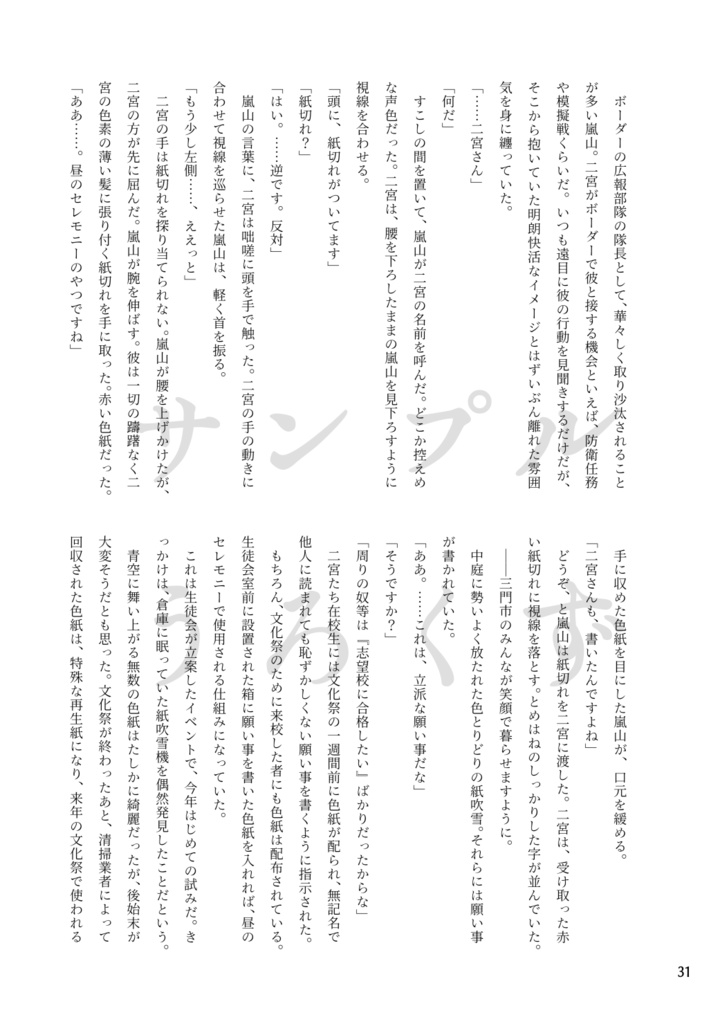 ボーダーの広報部隊の隊長として、華々しく取り沙汰されること
が多い嵐山。二宮がボーダーで彼と接する機会といえば、防衛任務
や模擬戦くらいだ。いつも遠目に彼の行動を見聞きするだけだが、
そこから抱いていた明朗快活なイメージとはずいぶん離れた雰囲
気を身に纏っていた。
「……二宮さん」
「何だ」
　すこしの間を置いて、嵐山が二宮の名前を呼んだ。どこか控えめ
な声色だった。二宮は、腰を下ろしたままの嵐山を見下ろすように
視線を合わせる。
「頭に、紙切れがついてます」
「紙切れ？」
「はい。……逆です。反対」
　嵐山の言葉に、二宮は咄嗟に頭を手で触った。二宮の手の動きに
合わせて視線を巡らせた嵐山は、軽く首を振る。
「もう少し左側……、ええっと」
　二宮の手は紙切れを探り当てられない。嵐山が腰を上げかけたが、
二宮の方が先に屈んだ。嵐山が腕を伸ばす。彼は一切の躊躇なく二
宮の色素の薄い髪に張り付く紙切れを手に取った。赤い色紙だった。
「ああ……。昼のセレモニーのやつですね」
　手に収めた色紙を目にした嵐山が、口元を緩める。
「二宮さんも、書いたんですよね」
　どうぞ、と嵐山は紙切れを二宮に渡した。二宮は、受け取った赤
い紙切れに視線を落とす。とめはねのしっかりした字が並んでいた。
　――三門市のみんなが笑顔で暮らせますように。
　中庭に勢いよく放たれた色とりどりの紙吹雪。それらには願い事
が書かれていた。
「ああ。……これは、立派な願い事だな」
「そうですか？」
「周りの奴等は『志望校に合格したい』ばかりだったからな」
　二宮たち在校生には文化祭の一週間前に色紙が配られ、無記名で
他人に読まれても恥ずかしくない願い事を書くように指示された。
　もちろん、文化祭のために来校した者にも色紙は配布されている。
生徒会室前に設置された箱に願い事を書いた色紙を入れれば、昼の
セレモニーで使用される仕組みになっていた。
　これは生徒会が立案したイベントで、今年はじめての試みだ。き
っかけは、倉庫に眠っていた紙吹雪機を偶然発見したことだという。
　青空に舞い上がる無数の色紙はたしかに綺麗だったが、後始末が
大変そうだとも思った。文化祭が終わったあと、清掃業者によって
回収された色紙は、特殊な再生紙になり、来年の文化祭で使われる
サンプル
うろくず
31